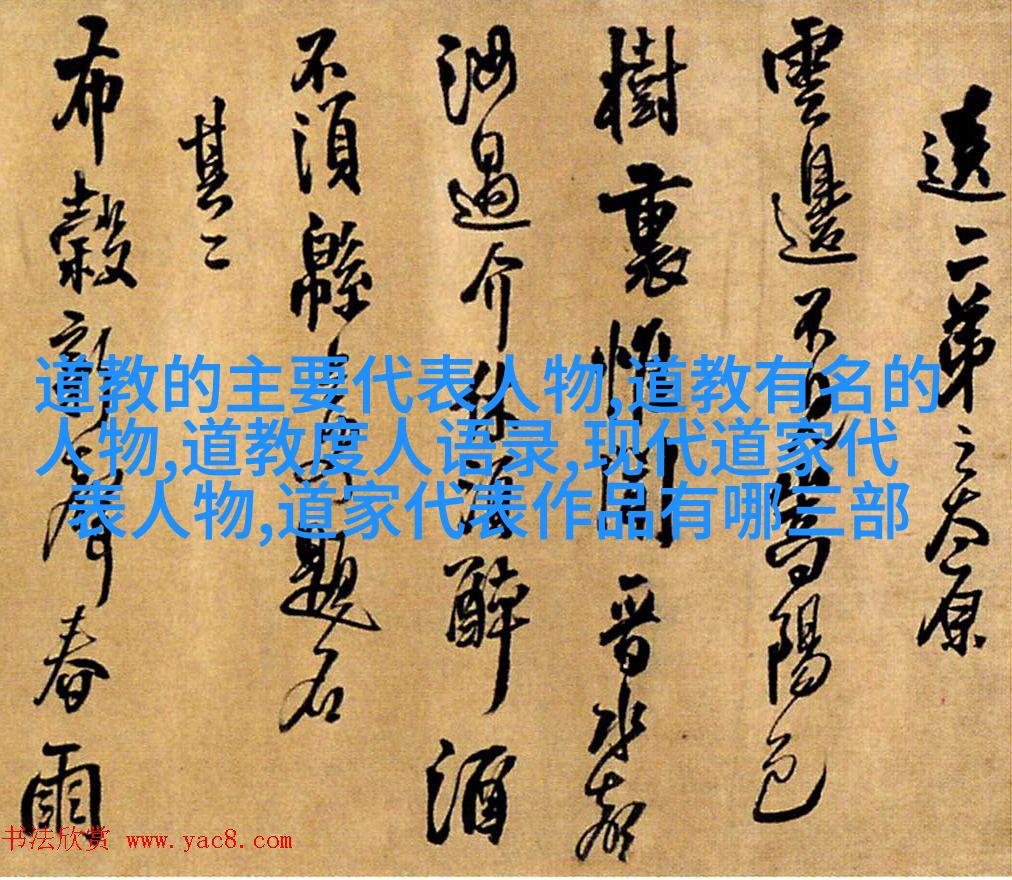 二弟之太原
雲邊不見嵩陽色
樹裏惟聞晋水
汝過介休醉酒
不須緜上題
其二
布穀春雨
道教的主要代表人物,道教有名的
人物,道教度人语录,现代道家代
表人物,道家代表作品有哪三部
书法欣赏 www.yac8.com